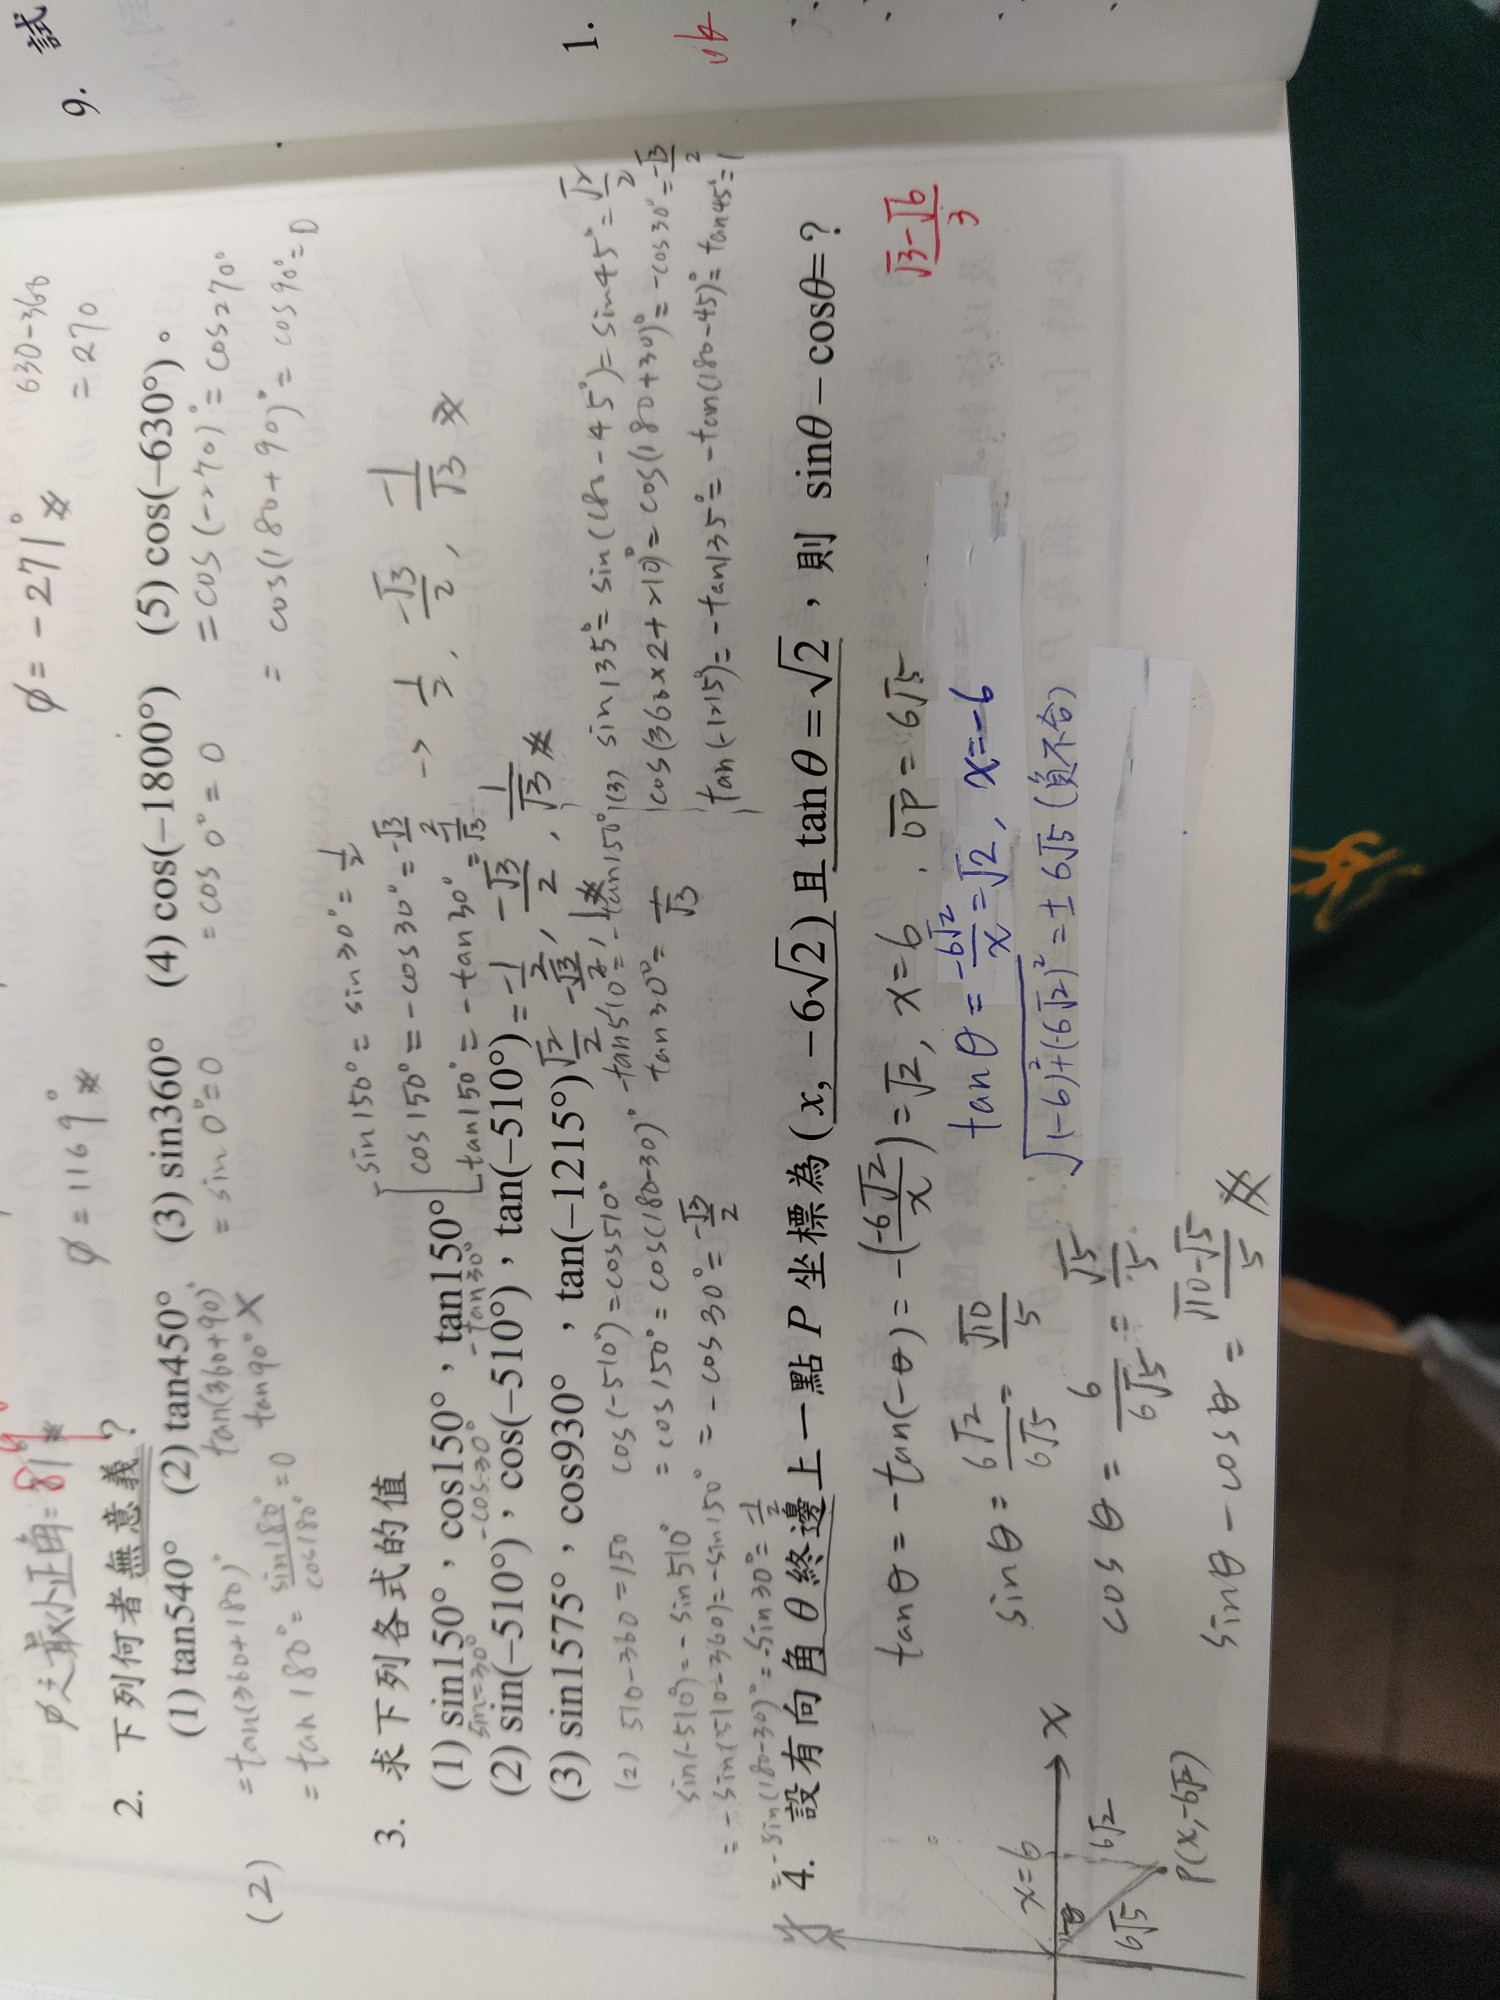 φ之最小正角=81°
φ=1169°
φ=-271°
630-360
=270
2. 下列何者無意義？
(1) tan540° (2) tan450° (3) sin360° (4) cos(−1800°) (5) cos(−630°)。
=tan(360+180)°
=tan180°=sin180°/cos180°=0
tan(360+90)°
tan90° X
=sin0°=0
=cos0°=0
=cos(-270)°=cos270°
=cos(180+90)°=cos90°=0
(2)
3. 求下列各式的值
sin150°=sin30°=1/2
cos150°=-cos30°=-√3/2
tan150°=-tan30°=-1/√3
→ 1/2, -√3/2, -1/√3
(1) sin150°，cos150°，tan150°
sin=30° -cos30° -tan30°
(2) sin(−510°)，cos(−510°)，tan(−510°)=-1/2, -√3/2, 1/√3
(3) sin1575°，cos930°，tan(−1215°) √2/2, -√3/2, 1
(2) 510-360=150
sin(-510°)=-sin510°
=-sin(510-360)=-sin150°
=-sin(180-30)°=-sin30°=-1/2
cos(-510°)=cos510°
=cos150°=cos(180-30)°
=-cos30°=-√3/2
-tan510°=-tan150°
tan30°=1/√3
(3) sin135°=sin(180-45°)=sin45°=√2/2
cos(360×2+210)°=cos(180+30)°=-cos30°=-√3/2
tan(-1215°)=-tan135°=-tan(180-45)°=tan45°=1
4. 設有向角 θ 終邊上一點 P 坐標為(x, −6√2)且tanθ=√2，則 sinθ−cosθ=？
tanθ=-tan(-θ)=-(-6√2/x)=√2, x=6, OP=6√5
√3-√6/3
tanθ=-6√2/x=√2, x=-6
√(-6)²+(-6√2)²=±6√5(負不合)
sinθ=6√2/6√5=√10/5
cosθ=6/6√5=√5/5
sinθ-cosθ=√10-√5/5
x=6
x
-θ
6√2
6√5
P(x,-6√2)
9. 試
1.